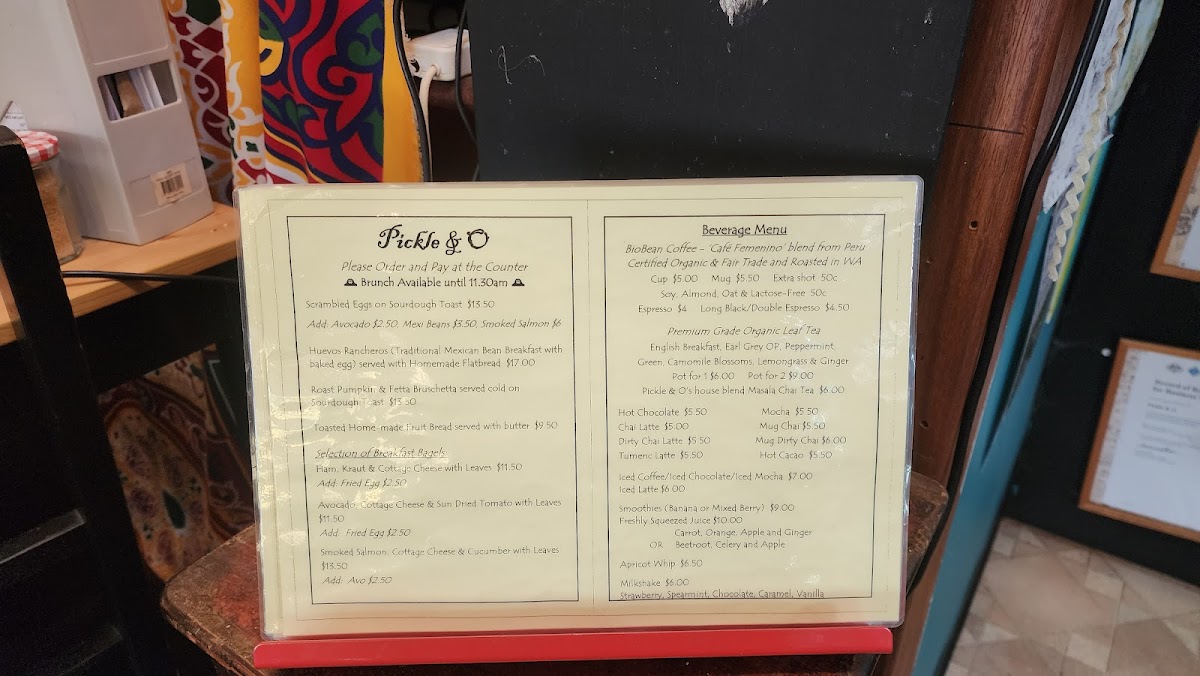 Pickle & O
Please Order and Pay at the Counter
Brunch Available until 11.30am
Scrambled Eggs on Sourdough Toast $13.50
Add: Avocado $2.50, Mexi Beans $3.50, Smoked Salmon $6
Huevos Rancheros (Traditional Mexican Bean Breakfast with
baked egg) served with Homemade Flatbread $17.00
Roast Pumpkin & Fetta Bruschetta served cold on
Sourdough Toast $13.50
Toasted Home-made Fruit Bread served with butter $9.50
Selection of Breakfast Bagels
Ham, Kraut & Cottage Cheese with Leaves $11.50
Add: Fried Egg $2.50
Avocado, Cottage Cheese & Sun Dried Tomato with Leaves
$11.50
Add: Fried Egg $2.50
Smoked Salmon, Cottage Cheese & Cucumber with Leaves
$13.50
Add: Avo $2.50
Beverage Menu
BioBean Coffee – 'Café Femenino' blend from Peru
Certified Organic & Fair Trade and Roasted in WA
Cup $5.00 Mug $5.50 Extra shot 50c
Soy, Almond, Oat & Lactose-Free 50c
Espresso $4 Long Black/Double Espresso $4.50
Premium Grade Organic Leaf Tea
English Breakfast, Earl Grey OP, Peppermint,
Green, Camomile Blossoms, Lemongrass & Ginger
Pot for 1 $6.00 Pot for 2 $9.00
Pickle & O's house blend Masala Chai Tea $6.00
Hot Chocolate $5.50 Mocha $5.50
Chai Latte $5.00 Mug Chai $5.50
Dirty Chai Latte $5.50 Mug Dirty Chai $6.00
Tumeric Latte $5.50 Hot Cacao $5.50
Iced Coffee/Iced Chocolate/Iced Mocha $7.00
Iced Latte $6.00
Smoothies (Banana or Mixed Berry) $9.00
Freshly Squeezed Juice $10.00
Carrot, Orange, Apple and Ginger
OR Beetroot, Celery and Apple
Apricot Whip $6.50
Milkshake $6.00
Strawberry, Spearmint, Chocolate, Caramel, Vanilla